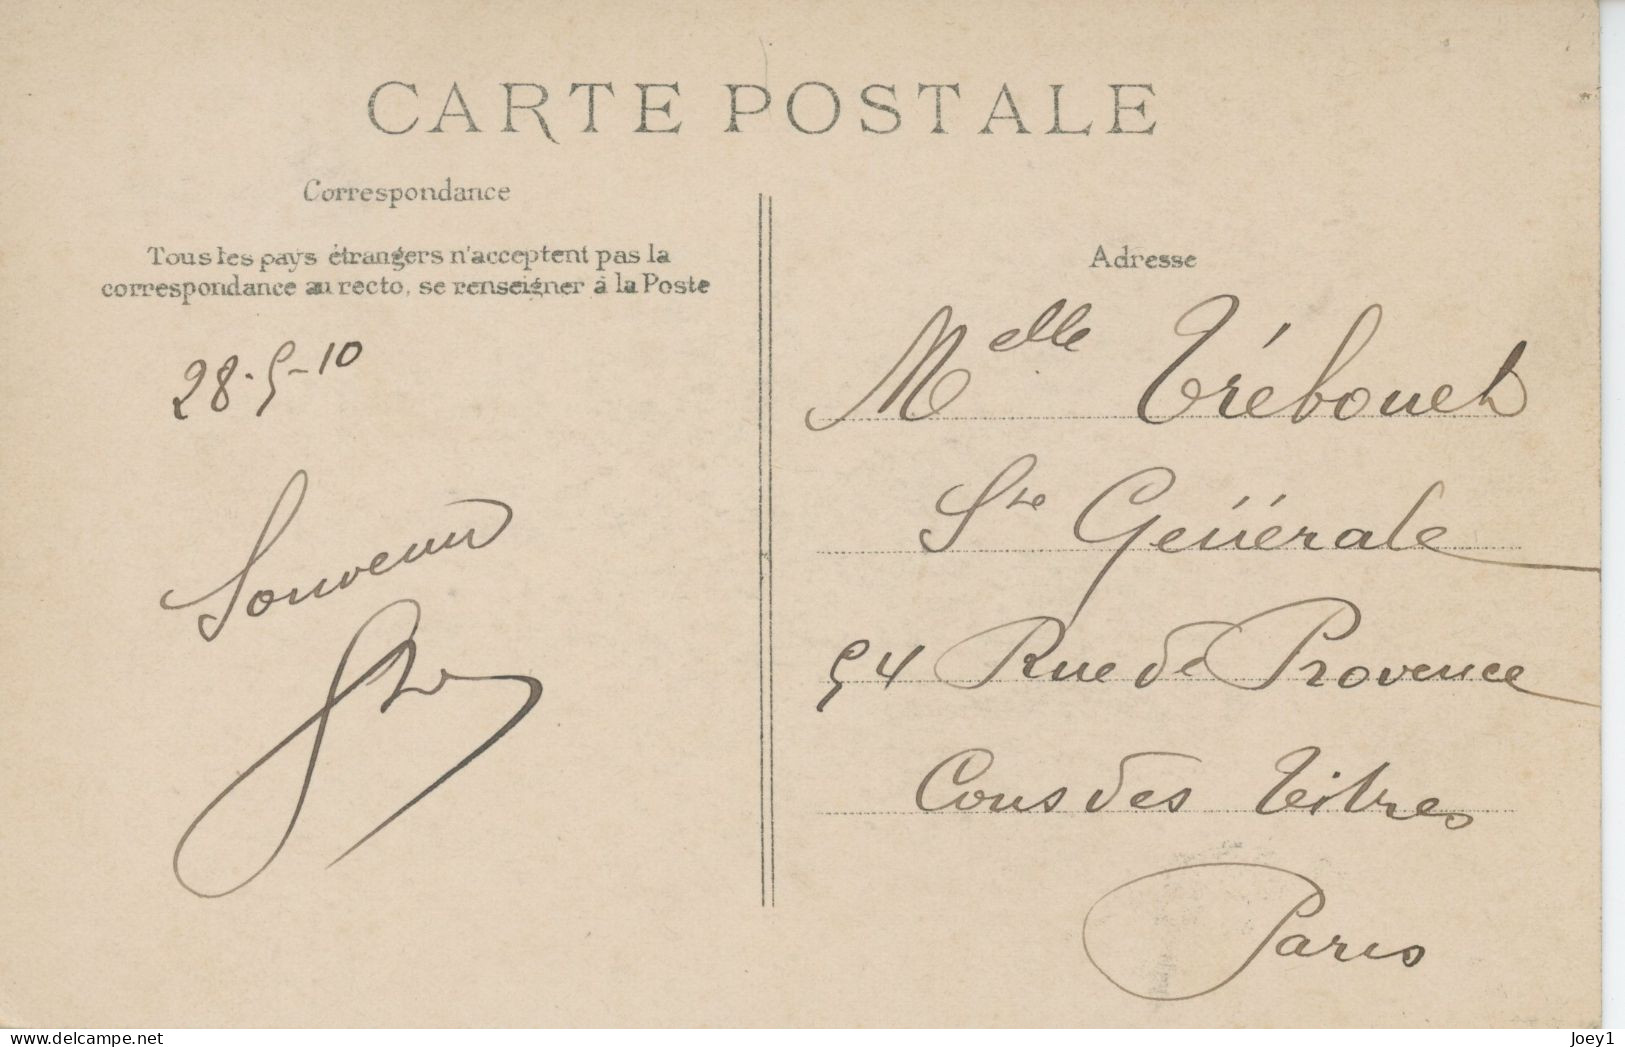 CARTE POSTALE
Correspondance
Tous les pays étrangers n'acceptent pas la
correspondance au recto, se renseigner à la Poste
28-5-10
Souvenir
Adresse
Melle Trébouel
Sté Générale
54 Rue de Provence
Cons des Titres
Paris
delcampe.net
Joey1